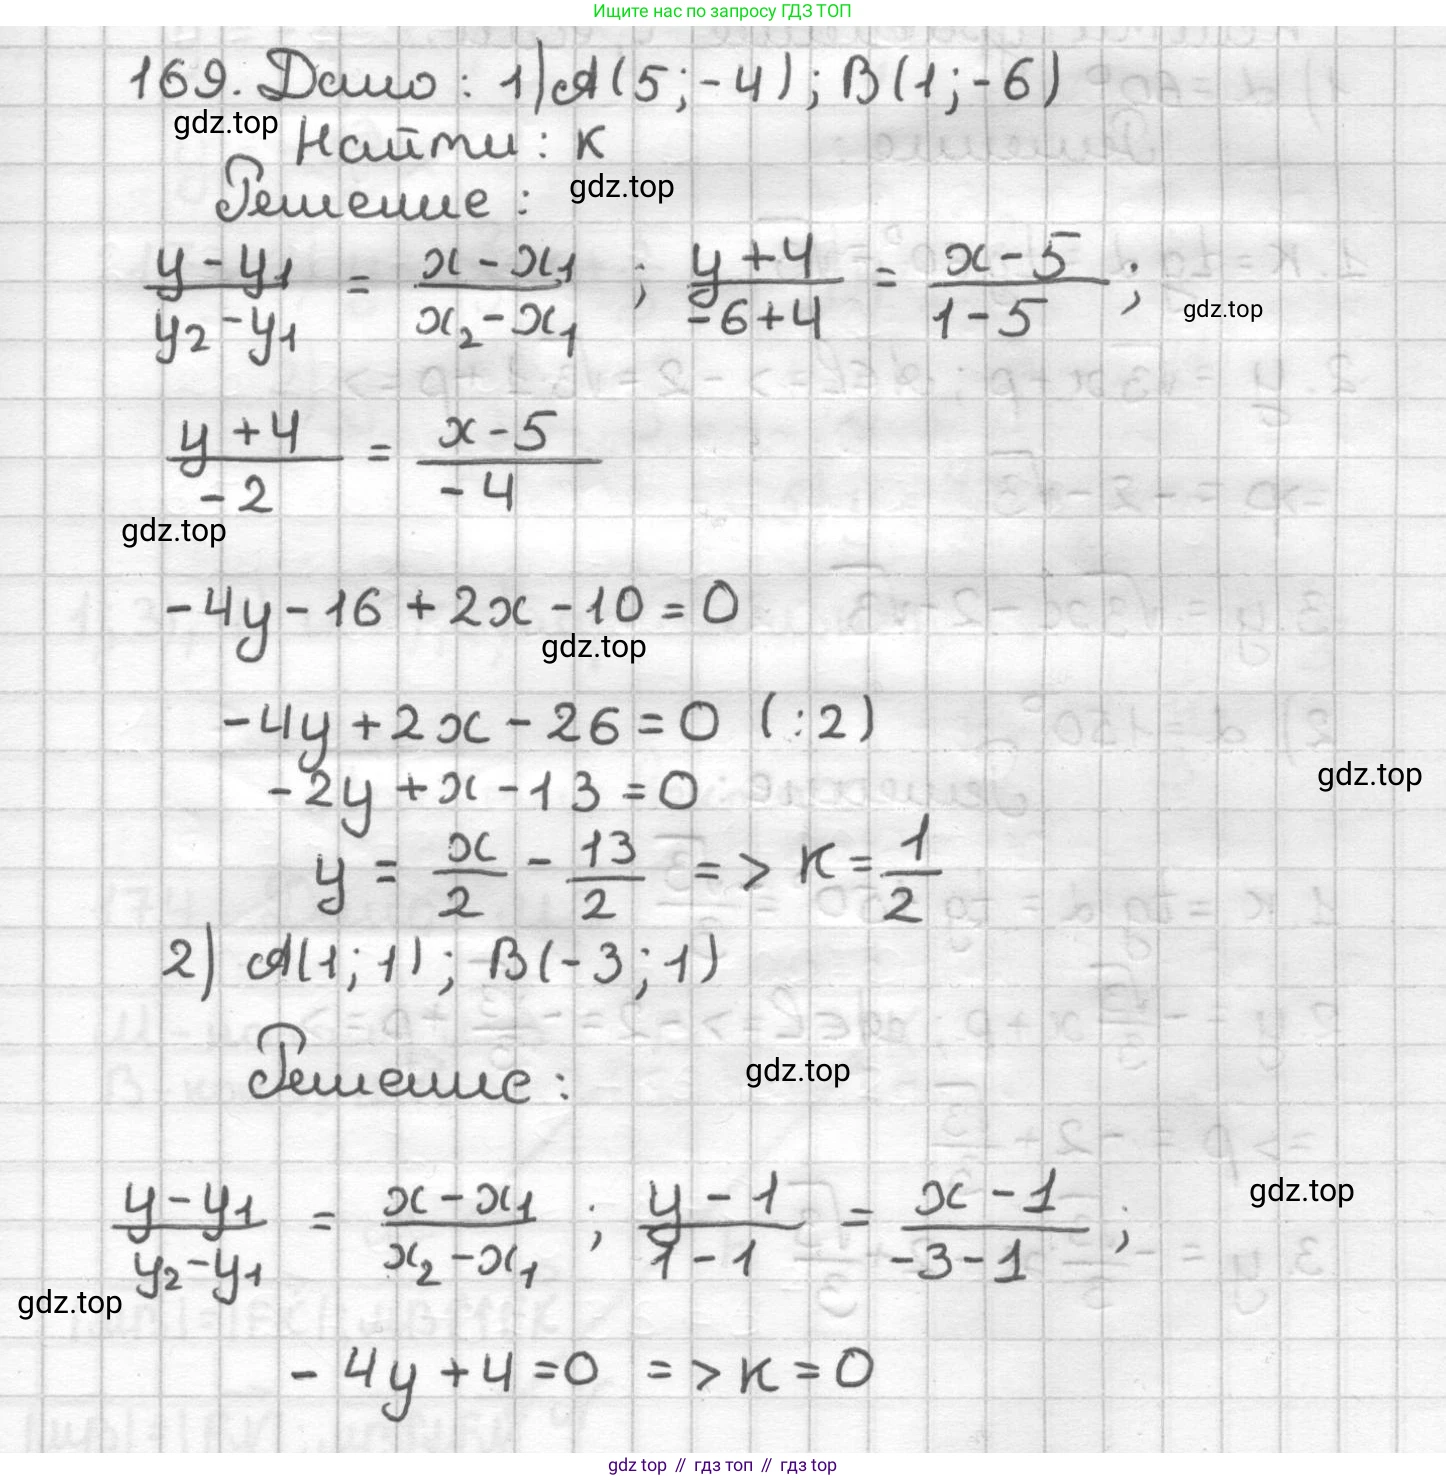 Ищите нас по запросу ГДЗ ТОП
169. Дано: 1) A(5; -4); B(1; -6)
gdz.top
Найти: к
gdz.top
Решение:
(y - y₁)/(y₂ - y₁) = (x - x₁)/(x₂ - x₁); (y + 4)/(-6 + 4) = (x - 5)/(1 - 5);
gdz.top
(y + 4)/(-2) = (x - 5)/(-4)
gdz.top
-4y - 16 + 2x - 10 = 0
gdz.top
-4y + 2x - 26 = 0 (:2)
gdz.top
-2y + x - 13 = 0
y = x/2 - 13/2 => к = 1/2
2) A(1; 1); B(-3; 1)
Решение:
gdz.top
gdz.top
(y - y₁)/(y₂ - y₁) = (x - x₁)/(x₂ - x₁); (y - 1)/(1 - 1) = (x - 1)/(-3 - 1);
gdz.top
-4y + 4 = 0 => к = 0
gdz.top // гдз топ // гдз.top